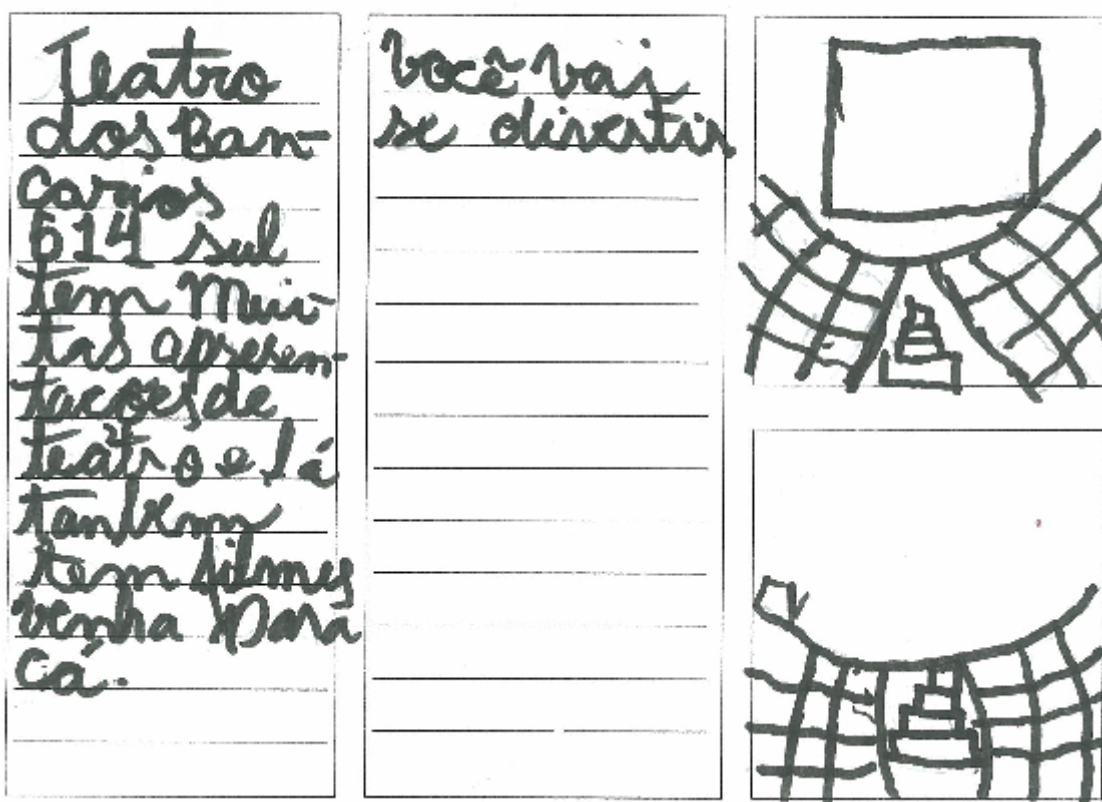 Teatro
dos Ban-
carios
614 sul
tem Mui-
tas apresen-
tações de
teatro e lá
tanbém
tem filmes
venha para
cá.
você vai
se divertir